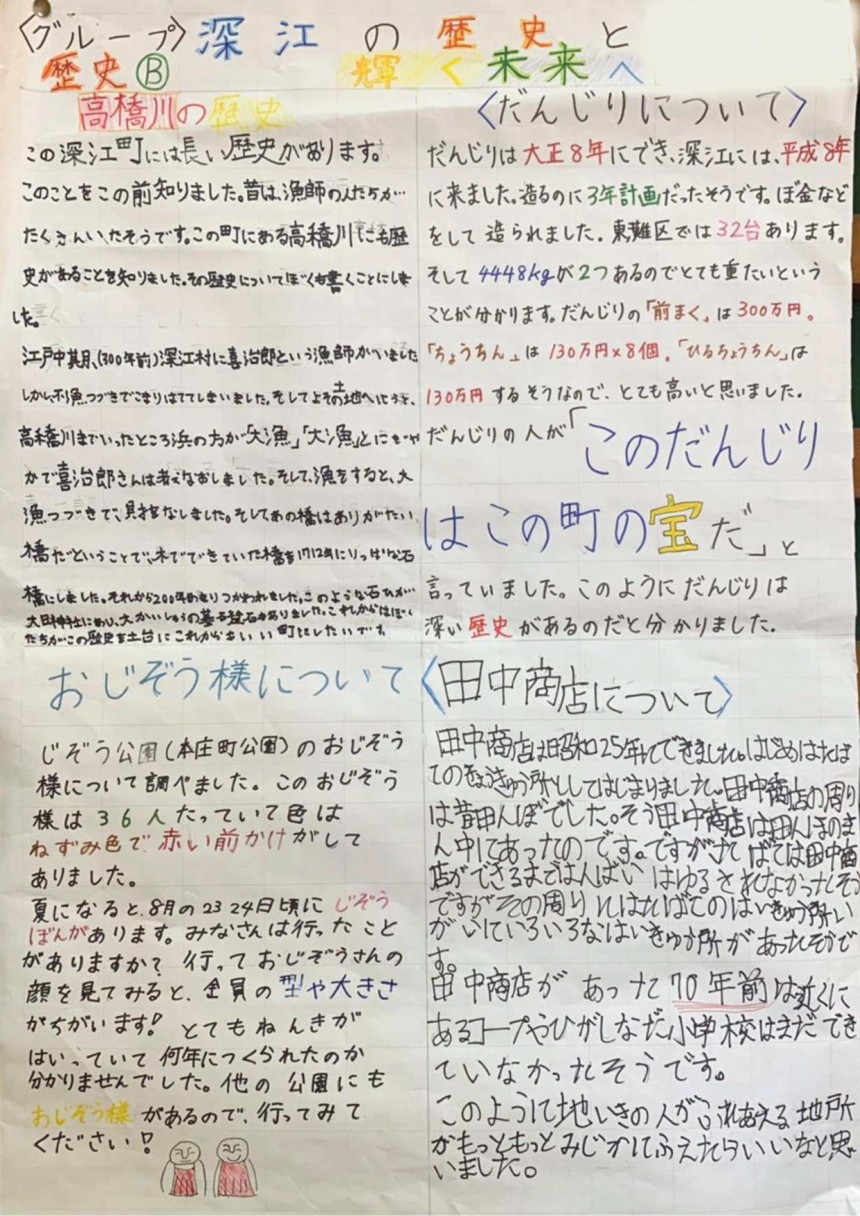 〈グループ〉深江の歴史と
歴史Ⓑ 輝く未来へ
高橋川の歴史
この深江町には長い歴史があります。
このことをこの前知りました。昔は、漁師の人たちが
たくさんいたそうです。この町にある高橋川にも歴
史があることを知りました。その歴史についてぼくも書くことにしま
した。
江戸中期、(300年前)深江村に喜治郎という漁師がいました
しかし、不漁つづきでこまりはててしまいました。そしてよその土地へ
高橋川までいったところ浜の方が「大漁」「大漁」とにぎや
かで喜治郎さんは考えなおしました。そして、漁をすると、大
漁つづきで、財をなしました。そしてあの橋はありがたい
橋だということで、木でできていた橋を1712年にりっぱな石
橋にしました。それから200年あまりつかわれました。このような石ひが
大日神社にあり、大かいしゅうの基石もありました。これからはぼく
たちがこの歴史を土台にこれからもいい町にしたいです。
〈だんじりについて〉
だんじりは大正8年にでき、深江には、平成8年
に来ました。造るのに3年計画だったそうです。ぼ金など
をして造られました。東灘区では32台あります。
そして4448kgが2つあるのでとても重たいという
ことが分かります。だんじりの「前まく」は300万円。
「ちょうちん」は130万円×8個。「ひるちょうちん」は
130万円するそうなので、とても高いと思いました。
だんじりの人が「このだんじり
はこの町の宝だ」と
言っていました。このようにだんじりは
深い歴史があるのだと分かりました。
おじぞう様について
じぞう公園(本庄町公園)のおじぞう
様について調べました。このおじぞう
様は36人たっていて色は
ねずみ色で赤い前かけがして
ありました。
夏になると、8月の23 24日頃にじぞう
ぼんがあります。みなさんは行ったこと
がありますか?行っておじぞうさんの
顔を見てみると、全員の型や大きさ
がちがいます!とてもねんきが
はいっていて何年につくられたのか
分かりませんでした。他の公園にも
おじぞう様があるので、行ってみて
ください!
〈田中商店について〉
田中商店は昭和25年にできました。はじめはたば
このきょきゅう所としてはじまりました。田中商店の周り
は昔田んぼでした。そう田中商店は田んぼのま
ん中にあったのです。ですがたばこは田中商
店ができるまでははんばいはゆるされなかったそう
ですがその周りにはたばこのはいきゅう所
がいていろいろなはいきゅう所があったそうで
す。
田中商店があった70年前は近くに
あるコープやひがしなだ小学校はまだでき
ていなかったそうです。
このように地いきの人がふれあえる地所
がもっともっとみじかにふえたらいいなと思
いました。